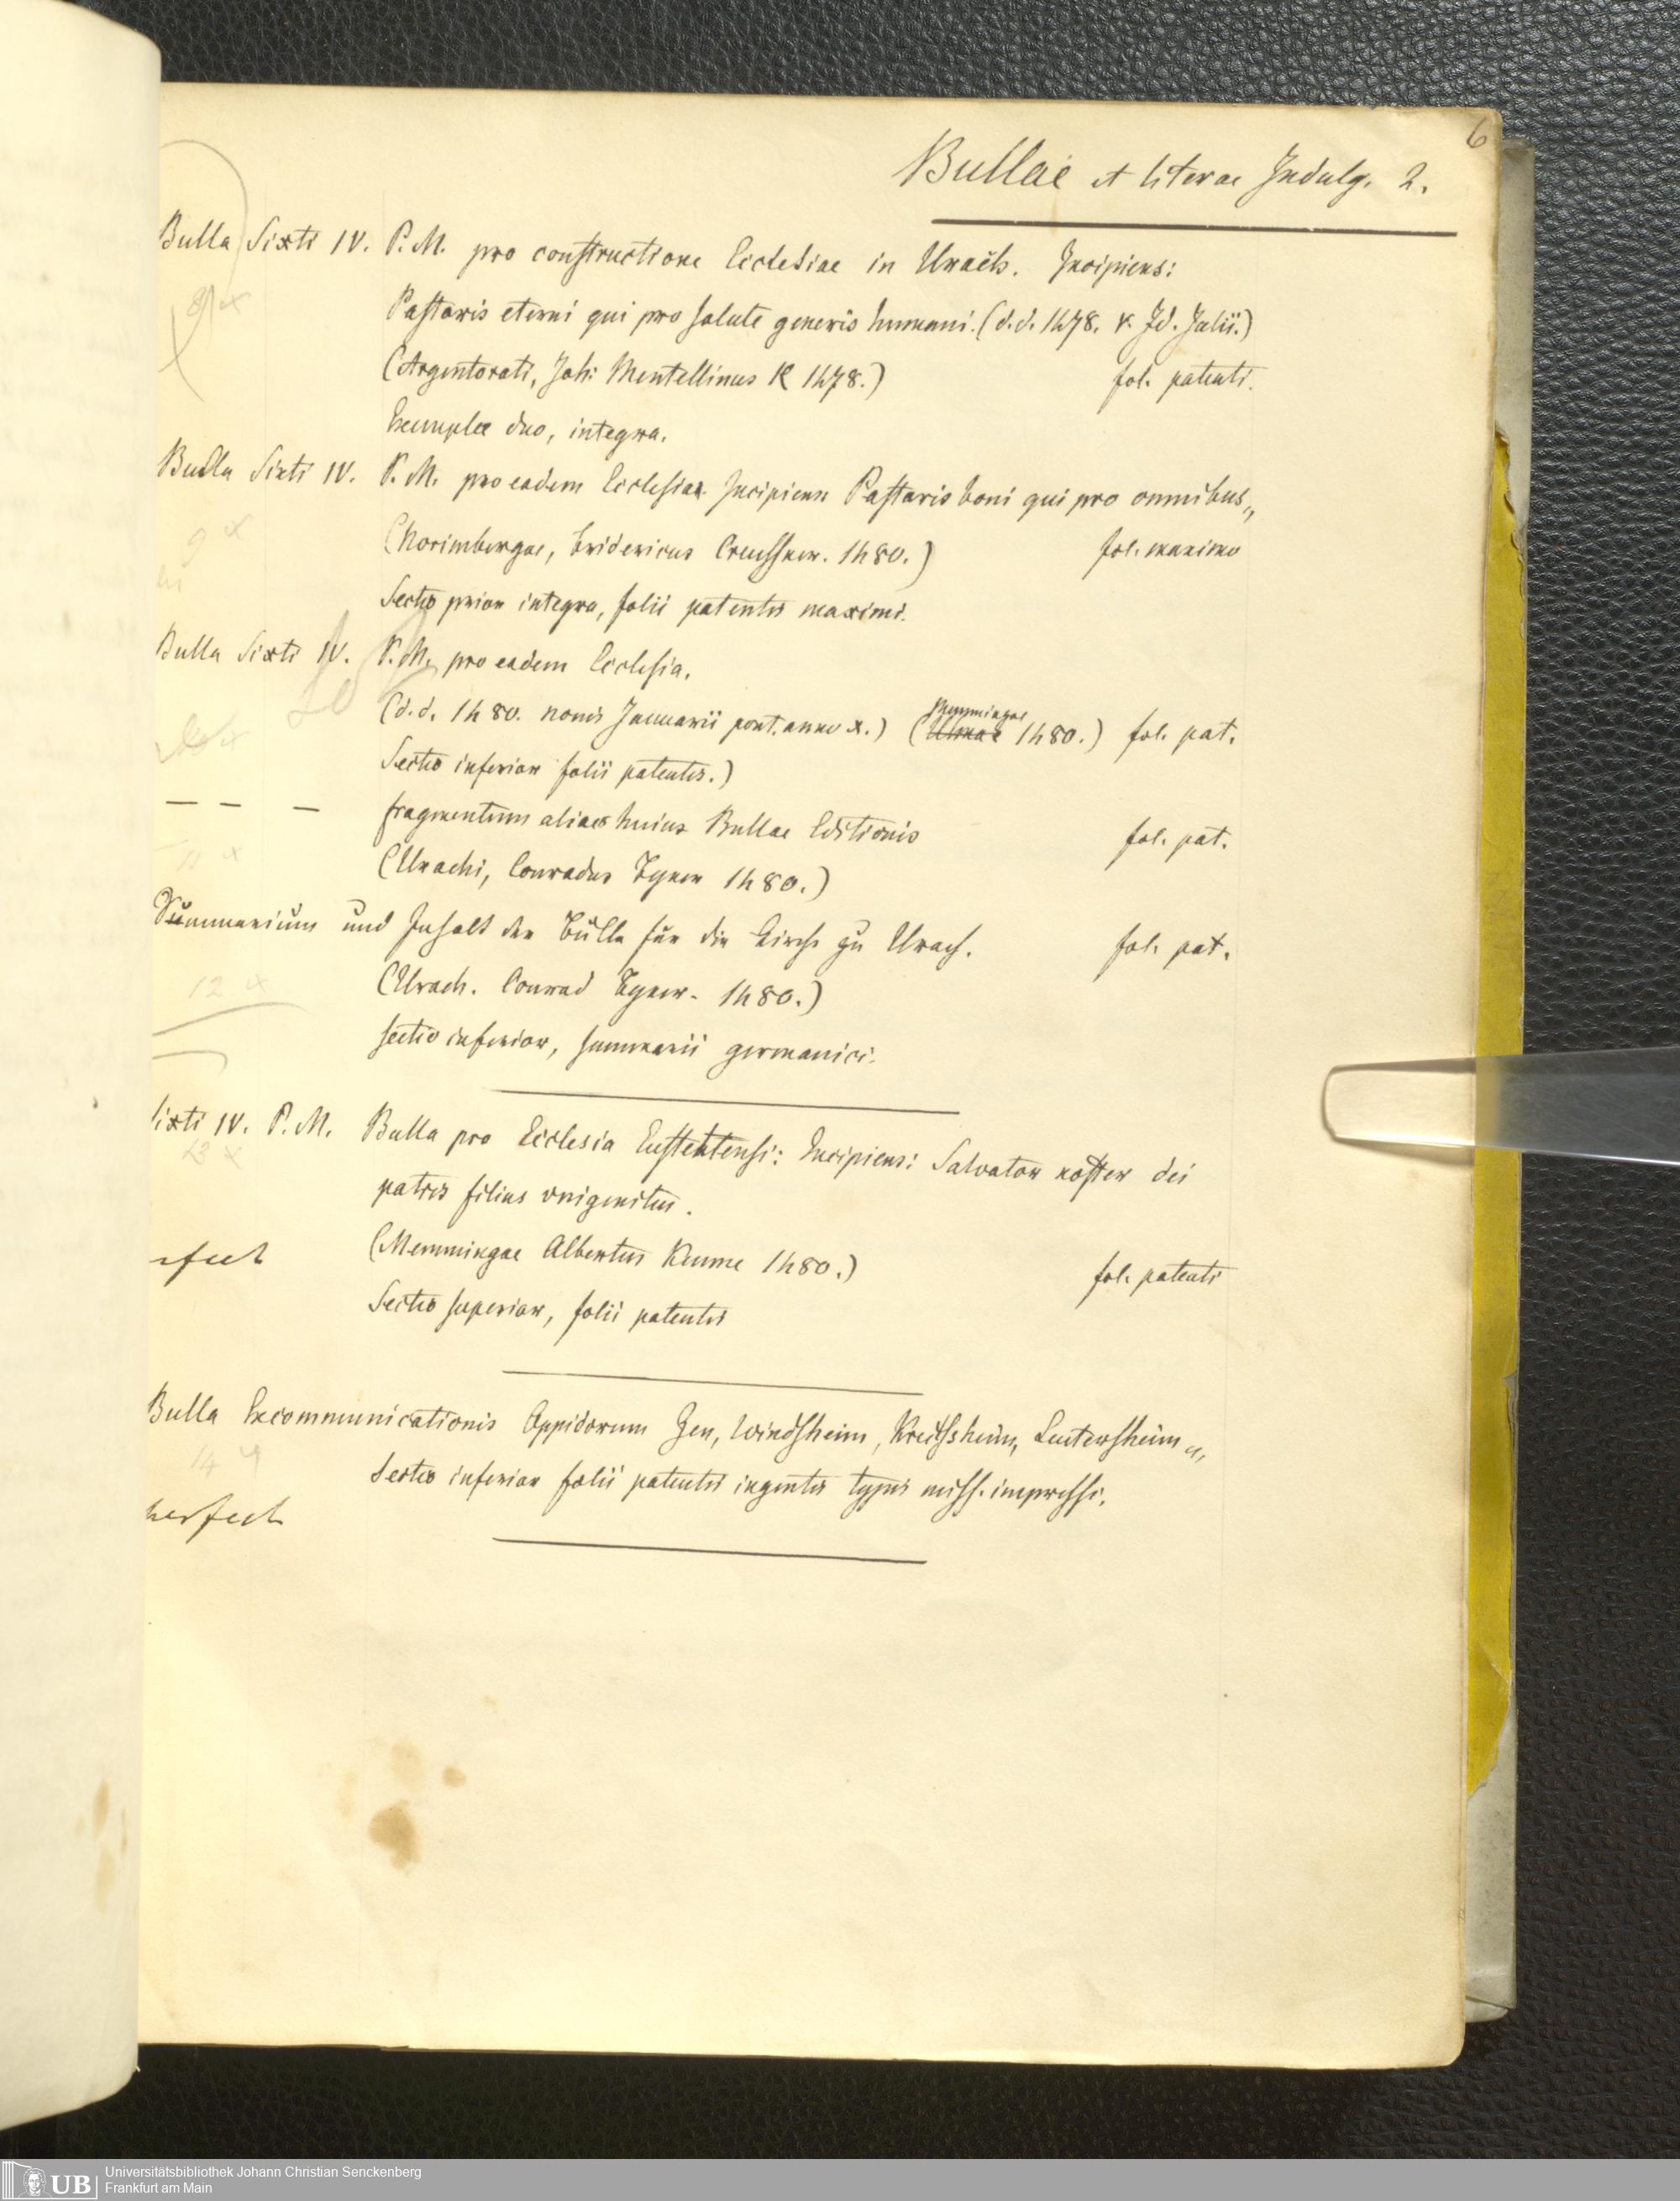 6
Bullae et literae Indulg. 2.
Bulla Sixti IV. P. M. pro constructione Ecclesiae in Urach. Incipiens:
8 x
Pastoris eterni qui pro salute generis humani. (d. d. 1478. V. Id. Julii.)
(Argentorati, Joh: Mentellinus 1478.) fol. patenti.
Exempla duo, integra.
Bulla Sixti IV. P. M. pro eadem Ecclesia. Incipiens Pastoris boni qui pro omnibus„
9 x
(Norimbergae, Fridericus Creussner. 1480.) fol. maximo
Sectio prior integra, folii patentis maximi.
Bulla Sixti IV. P. M. pro eadem Ecclesia.
10
(d. d. 1480. nonis Januarii pont. anno X.) (Ulmae Memmingae 1480.) fol. pat.
Sectio inferior folii patentis.)
— — — fragmentum aliae huius Bullae Editionis fol. pat.
11 x
(Urachi, Conradus Fyner 1480.)
Summarium und Inhalt der Bulle für die Kirche zu Urach. fol. pat.
12 x
(Urach. Conrad Fyner. 1480.)
sectio inferior, summarii germanici.
Sixti IV. P. M. Bulla pro Ecclesia Eustettensi: Incipiens: Salvator noster dei
13 x
patris filius unigenitus.
(Memmingae Albertus Kunne 1480.) fol. patenti
rfect
Sectio superior, folii patentis
Bulla Excommunicationis Oppidorum Gen, Windsheim, Kreilsheim, Leutersheim
14
Sectio inferior folii patentis ingentis typis miss. impressi.
perfect
UB
Universitätsbibliothek Johann Christian Senckenberg
Frankfurt am Main